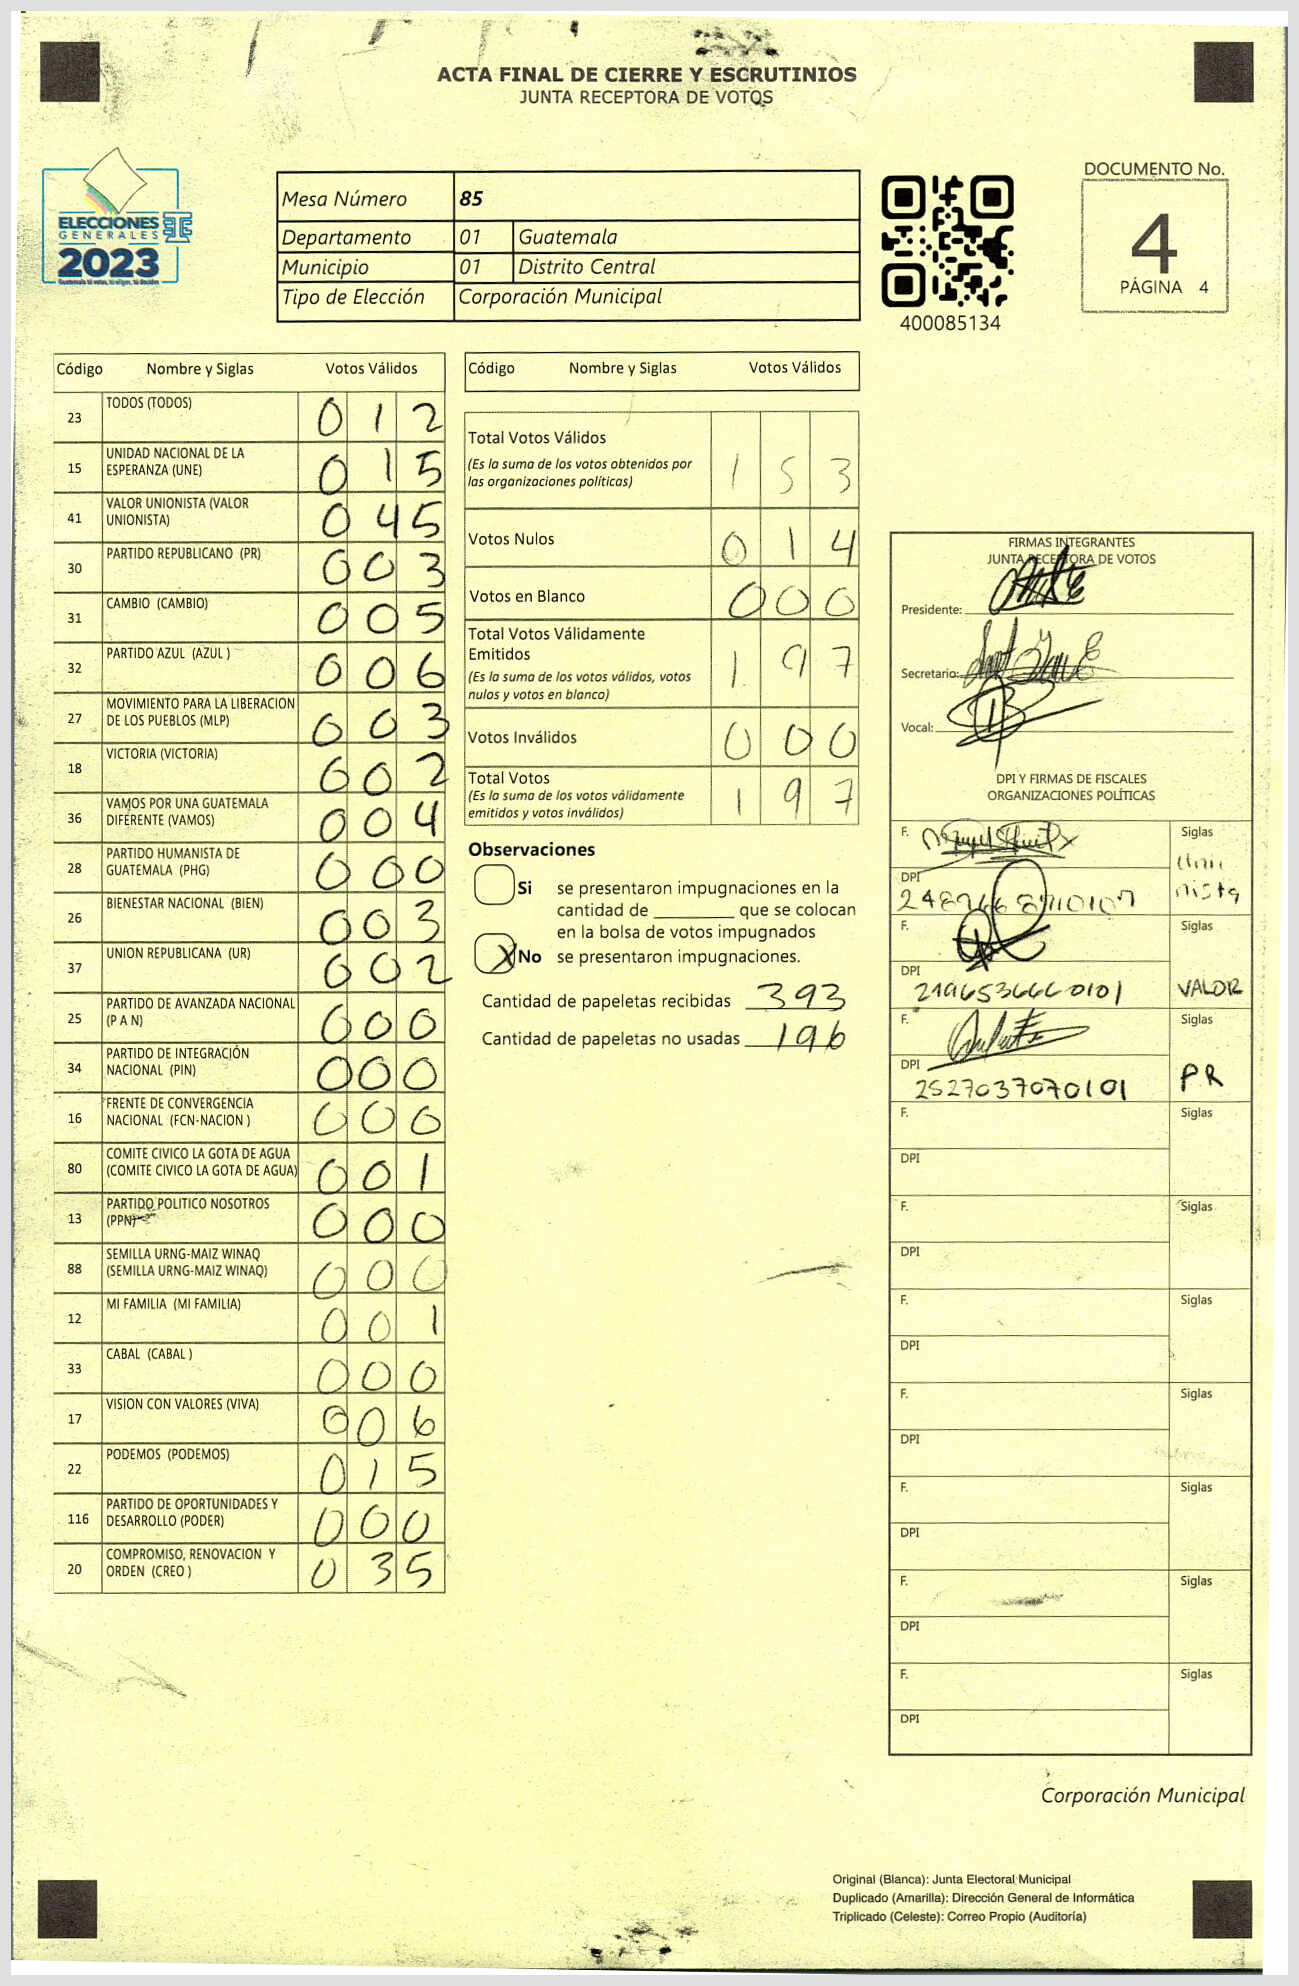 ACTA FINAL DE CIERRE Y ESCRUTINIOS
JUNTA RECEPTORA DE VOTOS
ELECCIONES
GENERALES
2023
Mesa Número 85
Departamento 01 Guatemala
Municipio 01 Distrito Central
Tipo de Elección Corporación Municipal
400085134
DOCUMENTO No.
4
PÁGINA 4
Código Nombre y Siglas Votos Válidos
23 TODOS (TODOS) 0 1 2
15 UNIDAD NACIONAL DE LA
ESPERANZA (UNE) 0 1 5
41 VALOR UNIONISTA (VALOR
UNIONISTA) 0 4 5
30 PARTIDO REPUBLICANO (PR) 0 0 3
31 CAMBIO (CAMBIO) 0 0 5
32 PARTIDO AZUL (AZUL ) 0 0 6
27 MOVIMIENTO PARA LA LIBERACION
DE LOS PUEBLOS (MLP) 0 0 3
18 VICTORIA (VICTORIA) 0 0 2
36 VAMOS POR UNA GUATEMALA
DIFERENTE (VAMOS) 0 0 4
28 PARTIDO HUMANISTA DE
GUATEMALA (PHG) 0 0 0
26 BIENESTAR NACIONAL (BIEN) 0 0 3
37 UNION REPUBLICANA (UR) 0 0 2
25 PARTIDO DE AVANZADA NACIONAL
(P A N) 0 0 0
34 PARTIDO DE INTEGRACIÓN
NACIONAL (PIN) 0 0 0
16 FRENTE DE CONVERGENCIA
NACIONAL (FCN-NACION ) 0 0 0
80 COMITE CIVICO LA GOTA DE AGUA
(COMITE CIVICO LA GOTA DE AGUA) 0 0 1
13 PARTIDO POLITICO NOSOTROS
(PPN) 0 0 0
88 SEMILLA URNG-MAIZ WINAQ
(SEMILLA URNG-MAIZ WINAQ) 0 0 0
12 MI FAMILIA (MI FAMILIA) 0 0 1
33 CABAL (CABAL ) 0 0 0
17 VISION CON VALORES (VIVA) 0 0 6
22 PODEMOS (PODEMOS) 0 1 5
116 PARTIDO DE OPORTUNIDADES Y
DESARROLLO (PODER) 0 0 0
20 COMPROMISO, RENOVACION Y
ORDEN (CREO ) 0 3 5
Código Nombre y Siglas Votos Válidos
Total Votos Válidos
(Es la suma de los votos obtenidos por
las organizaciones políticas) 1 5 3
Votos Nulos 0 1 4
Votos en Blanco 0 0 0
Total Votos Válidamente
Emitidos 1 9 7
(Es la suma de los votos válidos, votos
nulos y votos en blanco)
Votos Inválidos 0 0 0
Total Votos
(Es la suma de los votos válidamente
emitidos y votos inválidos) 1 9 7
Observaciones
Si se presentaron impugnaciones en la
cantidad de ________ que se colocan
en la bolsa de votos impugnados
X No se presentaron impugnaciones.
Cantidad de papeletas recibidas 393
Cantidad de papeletas no usadas 196
FIRMAS INTEGRANTES
JUNTA RECEPTORA DE VOTOS
Presidente:
Secretario:
Vocal:
DPI Y FIRMAS DE FISCALES
ORGANIZACIONES POLÍTICAS
F. Siglas
DPI
F. Siglas
DPI
VALOR
F. Siglas
DPI
2527037070101 PR
F. Siglas
DPI
F. Siglas
DPI
F. Siglas
DPI
F. Siglas
DPI
F. Siglas
DPI
F. Siglas
DPI
F. Siglas
DPI
Corporación Municipal
Original (Blanca): Junta Electoral Municipal
Duplicado (Amarilla): Dirección General de Informática
Triplicado (Celeste): Correo Propio (Auditoría)